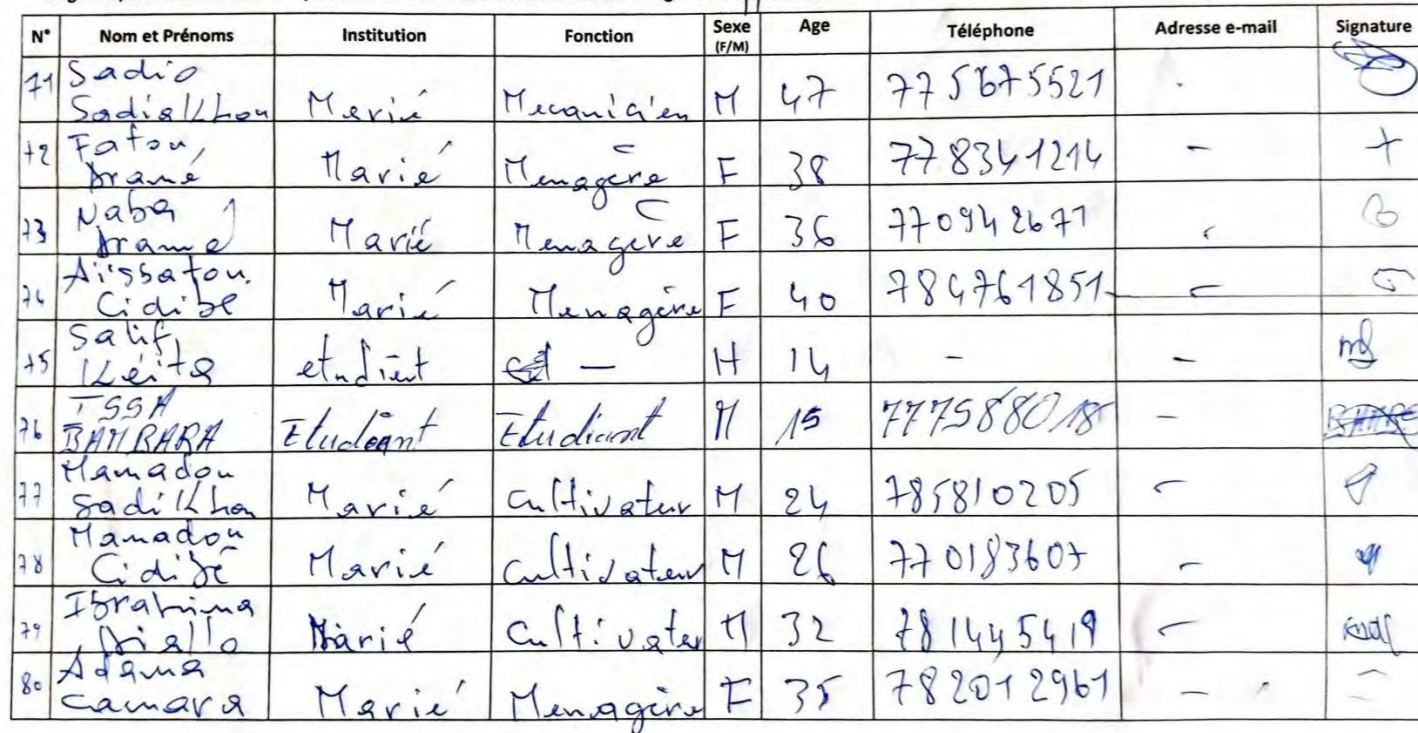 N° Nom et Prénoms Institution Fonction Sexe (F/M) Age Téléphone Adresse e-mail Signature
71 Sadio Sadiakhou Marié Mecanicien M 47 775675521
72 Fatou Dramé Marié Menagère F 38 778341214 - +
73 Naba Dramé Marié Menagère F 36 770942671 -
74 Aissatou Cidibé Marié Menagère F 40 784761851 -
75 Salif Keita etudient - H 14 - -
76 ISSA BAMBARA Etudeant Etudiant M 15 777588018 -
77 Mamadou Sadikhou Marié Cultivateur M 24 785810205 -
78 Mamadou Cidibé Marié Cultivateur M 26 770183607 -
79 Ibrahima Diallo Marié Cultivater M 32 781445419 -
80 Adama Camara Marié Menagère F 35 782012961 -